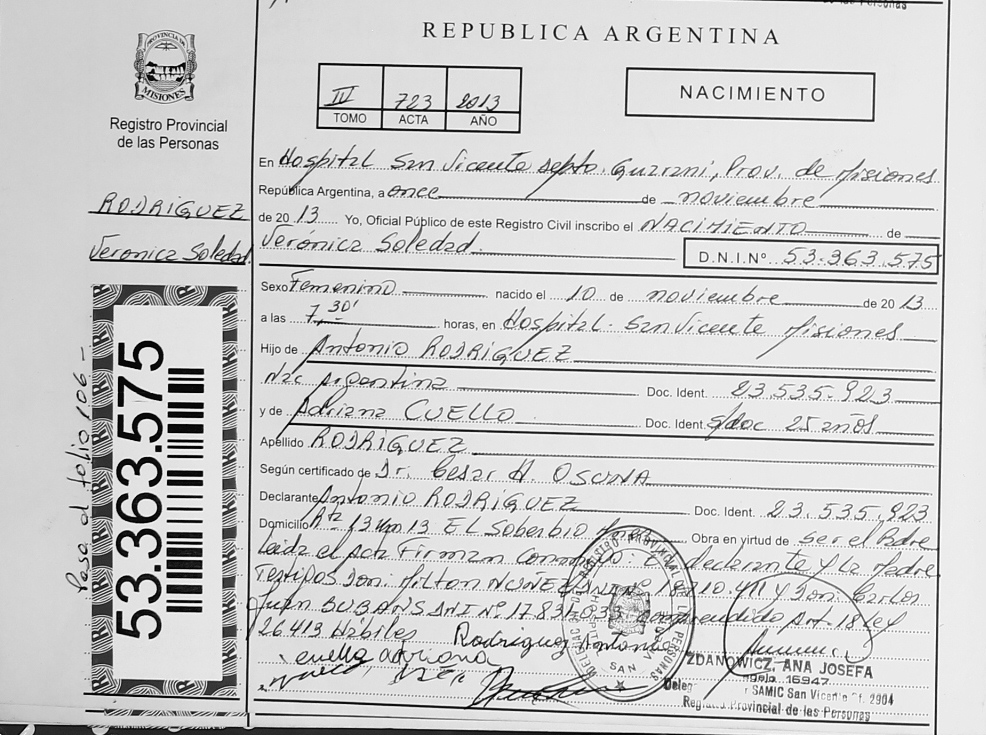 de las Personas
REPUBLICA ARGENTINA
PROVINCIA DE
MISIONES
Registro Provincial
de las Personas
III 723 2013
TOMO ACTA AÑO
NACIMIENTO
RODRIGUEZ
Veronica Soledad.
Paso al folio 106 -
53.363.575
En Hospital San Vicente depto. Guarani, Prov. de Misiones
República Argentina, a once de noviembre
de 2013 Yo, Oficial Público de este Registro Civil inscribo el NACIMIENTO de
Verónica Soledad. D.N.I.Nº 53.363.575
Sexo Femenino nacido el 10 de noviembre de 2013
a las 7,30' horas, en Hospital San Vicente Misiones
Hijo de Antonio RODRIGUEZ
Nac Argentina Doc. Ident. 23.535.923
y de Adriana CUELLO Doc. Ident. s/doc 25 años
Apellido RODRIGUEZ
Según certificado de Dr. Cesar A. OSUNA
Declarante Antonio RODRIGUEZ Doc. Ident. 23.535.923
Domicilio 13 Km 13 EL Soberbio Obra en virtud de ser el Padre
Leida el Acta Firman Conmigo: El declarante y la Madre
Testigos Don: Milton NUNEZ DNI Nº y Don: Carlos
Juan DNI Nº comprendido Art. 18 Ley
26.413 Hábiles Rodriguez Antonio
cuello adriana
ZDANOWICZ, ANA JOSEFA
16947
SAMIC San Vicente Of. 2904
Registro Provincial de las Personas